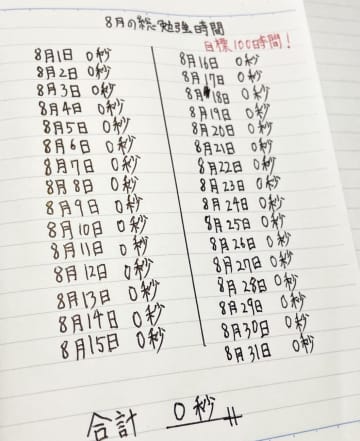 8月の総勉強時間
目標100時間！
8月1日 0秒
8月2日 0秒
8月3日 0秒
8月4日 0秒
8月5日 0秒
8月6日 0秒
8月7日 0秒
8月8日 0秒
8月9日 0秒
8月10日 0秒
8月11日 0秒
8月12日 0秒
8月13日 0秒
8月14日 0秒
8月15日 0秒
8月16日 0秒
8月17日 0秒
8月18日 0秒
8月19日 0秒
8月20日 0秒
8月21日 0秒
8月22日 0秒
8月23日 0秒
8月24日 0秒
8月25日 0秒
8月26日 0秒
8月27日 0秒
8月28日 0秒
8月29日 0秒
8月30日 0秒
8月31日 0秒
合計 0秒